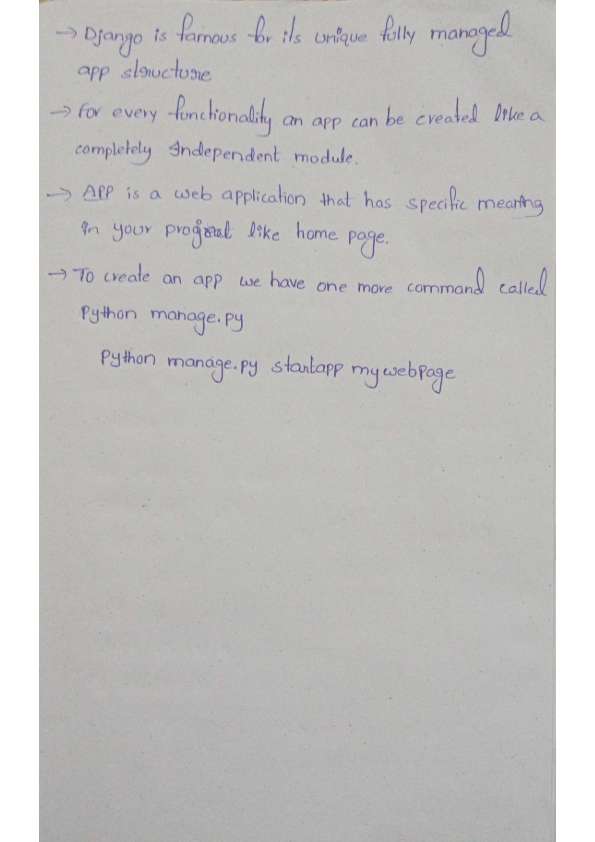 → Django is famous for its unique fully managed
app structure
→ For every functionality an app can be created like a
completely Independent module.
→ APP is a web application that has specific meaning
in your project like home page.
→ To create an app we have one more command called
Python manage.py
Python manage.py startapp mywebpage